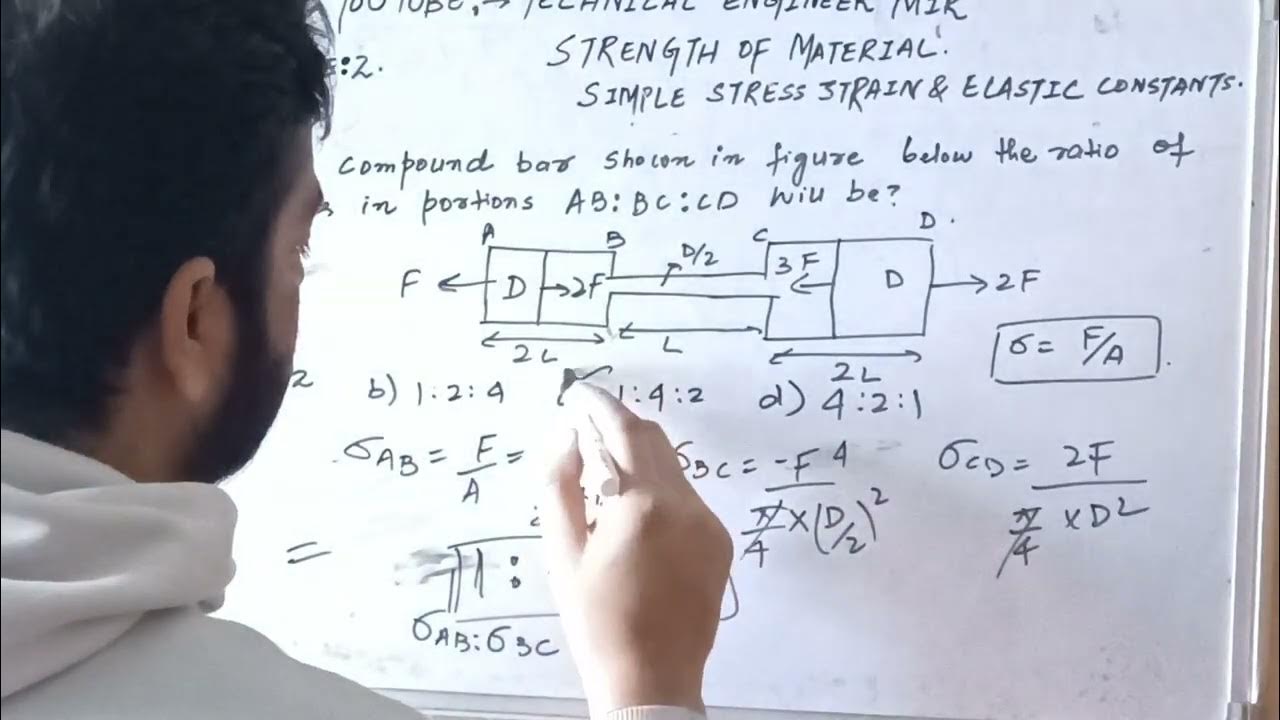 YOUTUBE,→ TECHNICAL ENGINEER MIR
:2.
STRENGTH OF MATERIAL.
SIMPLE STRESS STRAIN & ELASTIC CONSTANTS.
compound bar shown in figure below the ratio of
in portions AB:BC:CD will be?
A B C D.
D/2
F D 2F 3F D 2F
2L L 2L
σ = F/A
2 b) 1:2:4 1:4:2 d) 4:2:1
σAB = F/A = σBC = -F 4 / π/4 × (D/2)² σCD = 2F / π/4 × D²
= 1:
σAB:σBC